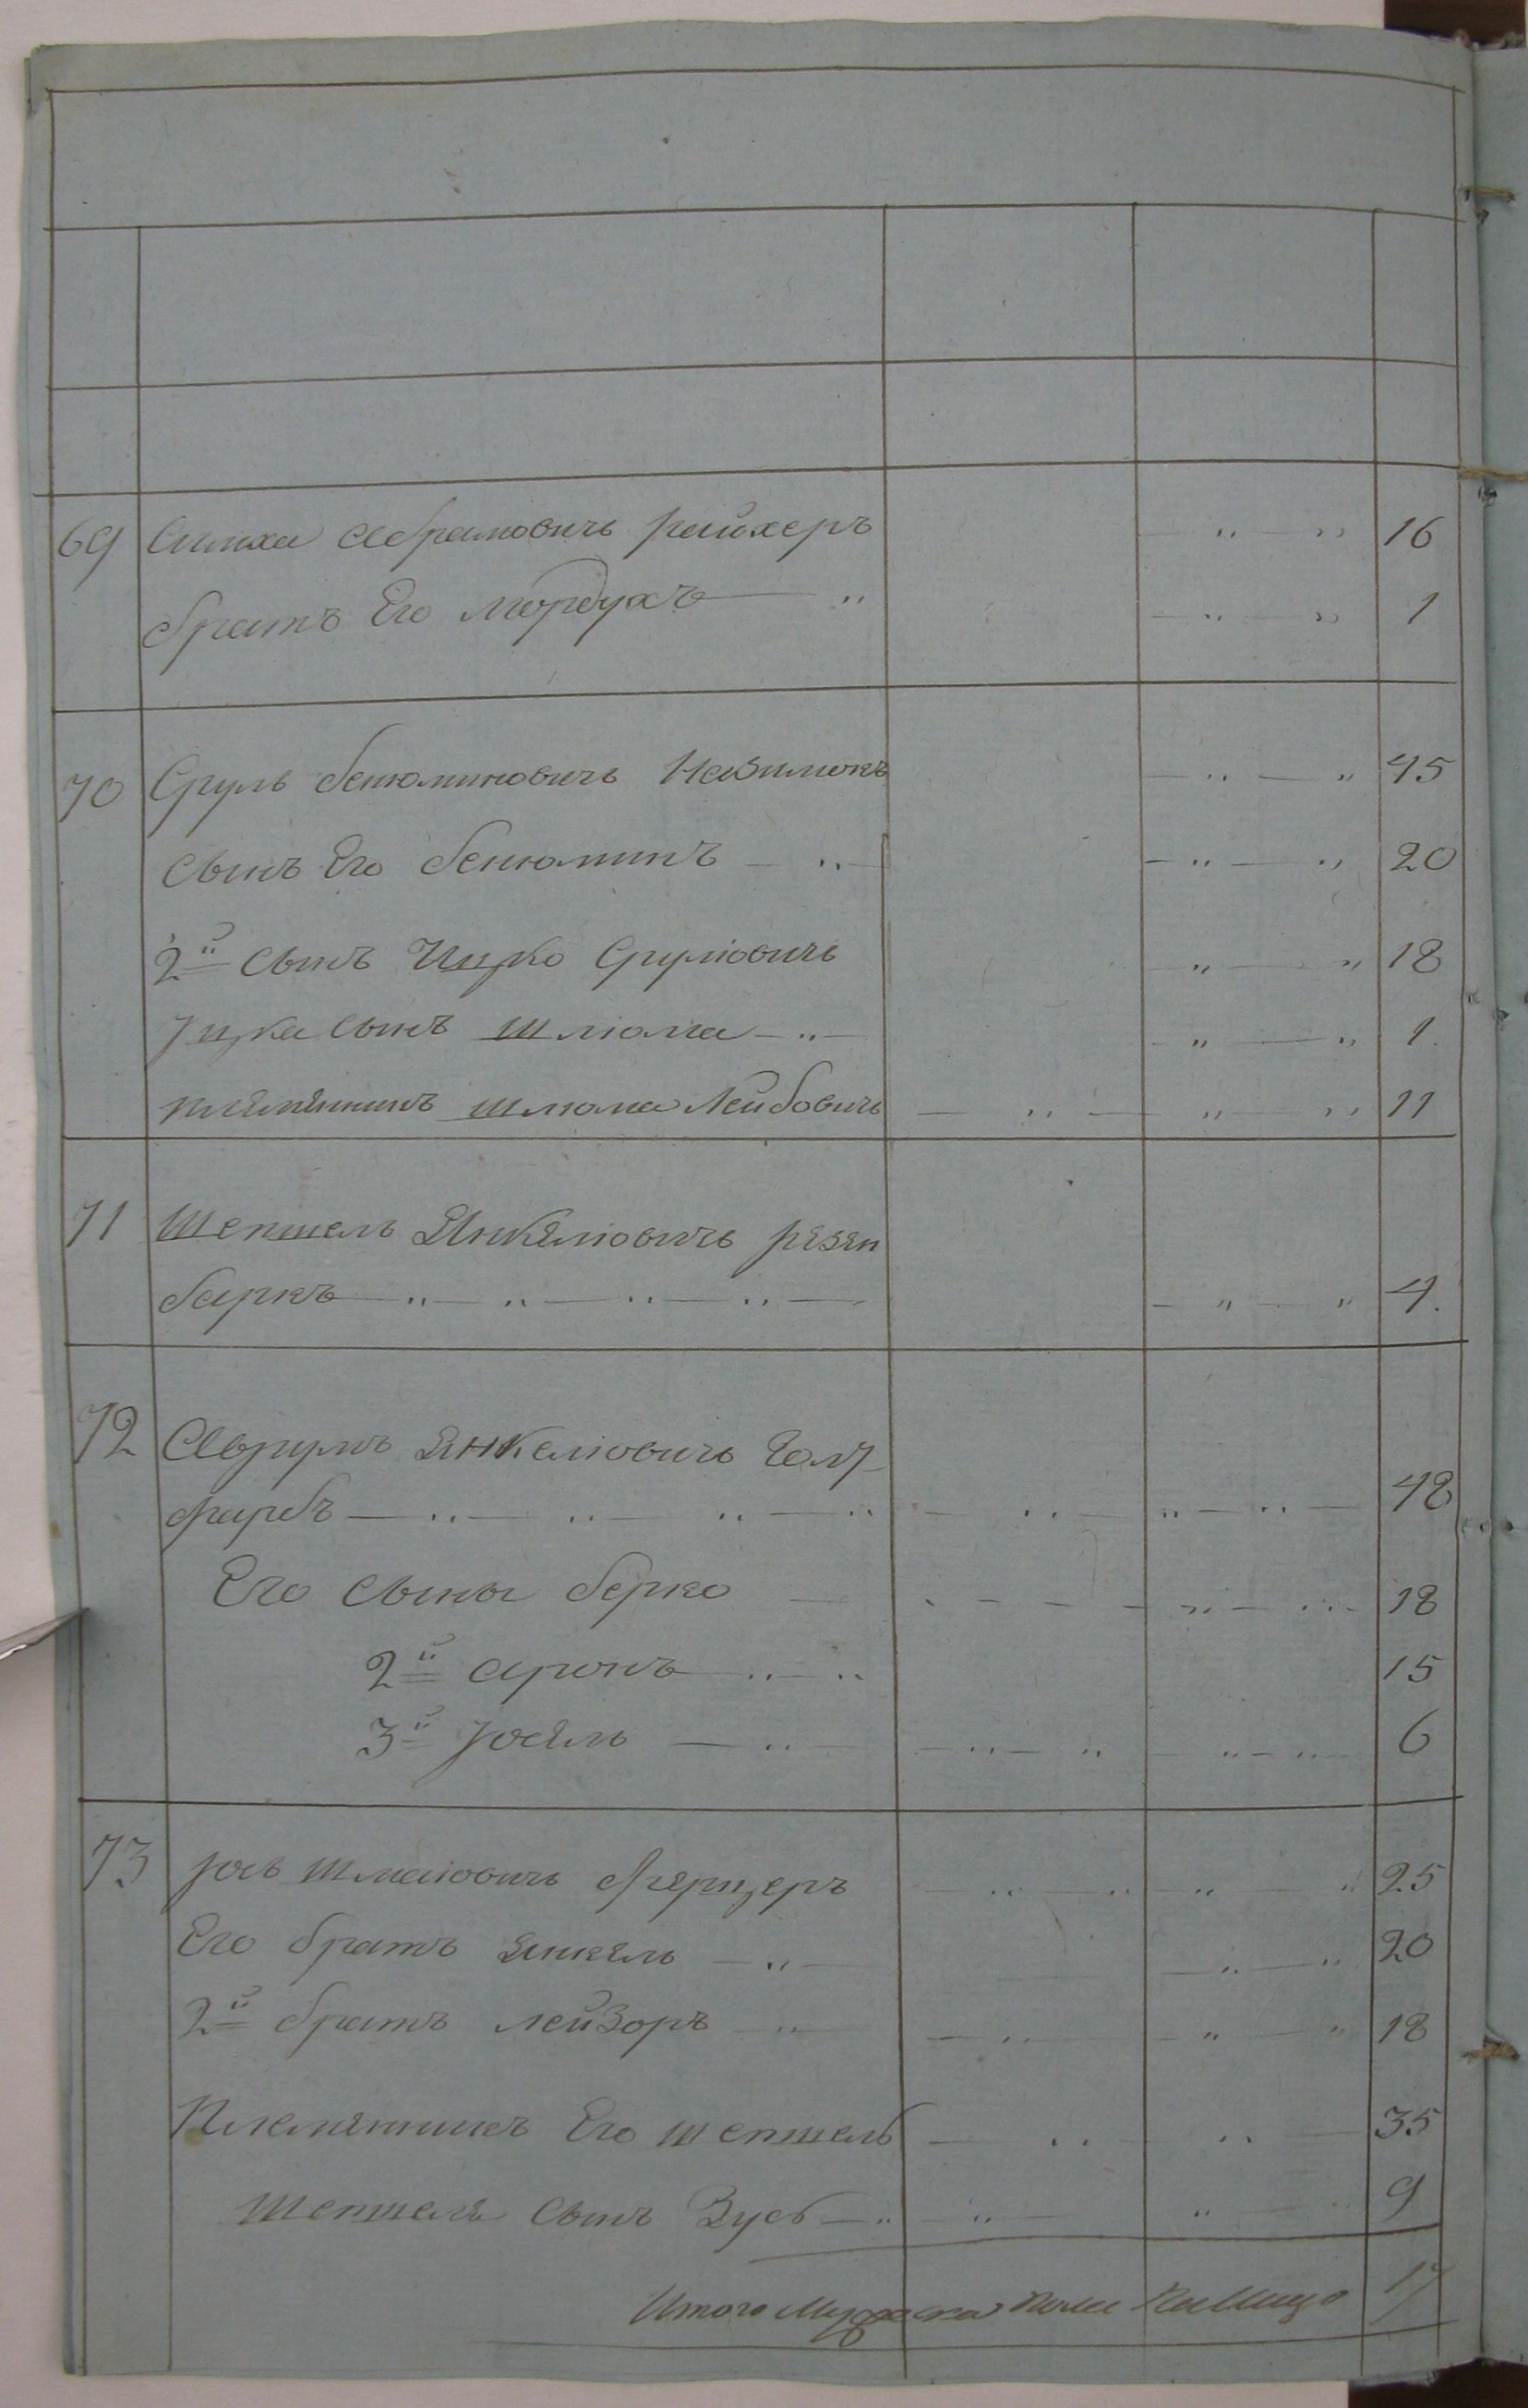 69 Симха Абрамовичъ райхеръ — " — " 16
братъ Его Мордухъ — " — " — " 1
70 Сруль бенюминовичъ — " — " 45
сынъ Его бенюминъ — " — " — " 20
2й сынъ Ицко Срулiовичъ — " — " 18
Iцка сынъ шлiома — " — " — " 1.
племянникъ шлиома Лейбовичъ — " — " — " 11
71 Шепшель Янкелiовичъ рязен
баркъ — " — " — " — " — " — " 4.
72 Аврумъ Янкелiовичъ Гол
фарбъ — " — " — " — " — " — " — " — 48
Его сыны берко — — " — " 18
2й аронъ — " — " 15
3й Iосель — " — " — " — " — " 6
73 Iось Шмаiовичъ — " — " — " — " 25
Его братъ янкель — " — " — " 20
2й братъ лейзоръ — " — " — " — " 18
Племянникъ Его шепшель — " — " — 35
Шепшеля сынъ Зусь — " — " — " — 9
Итого Мужеска пола На Лицо 17